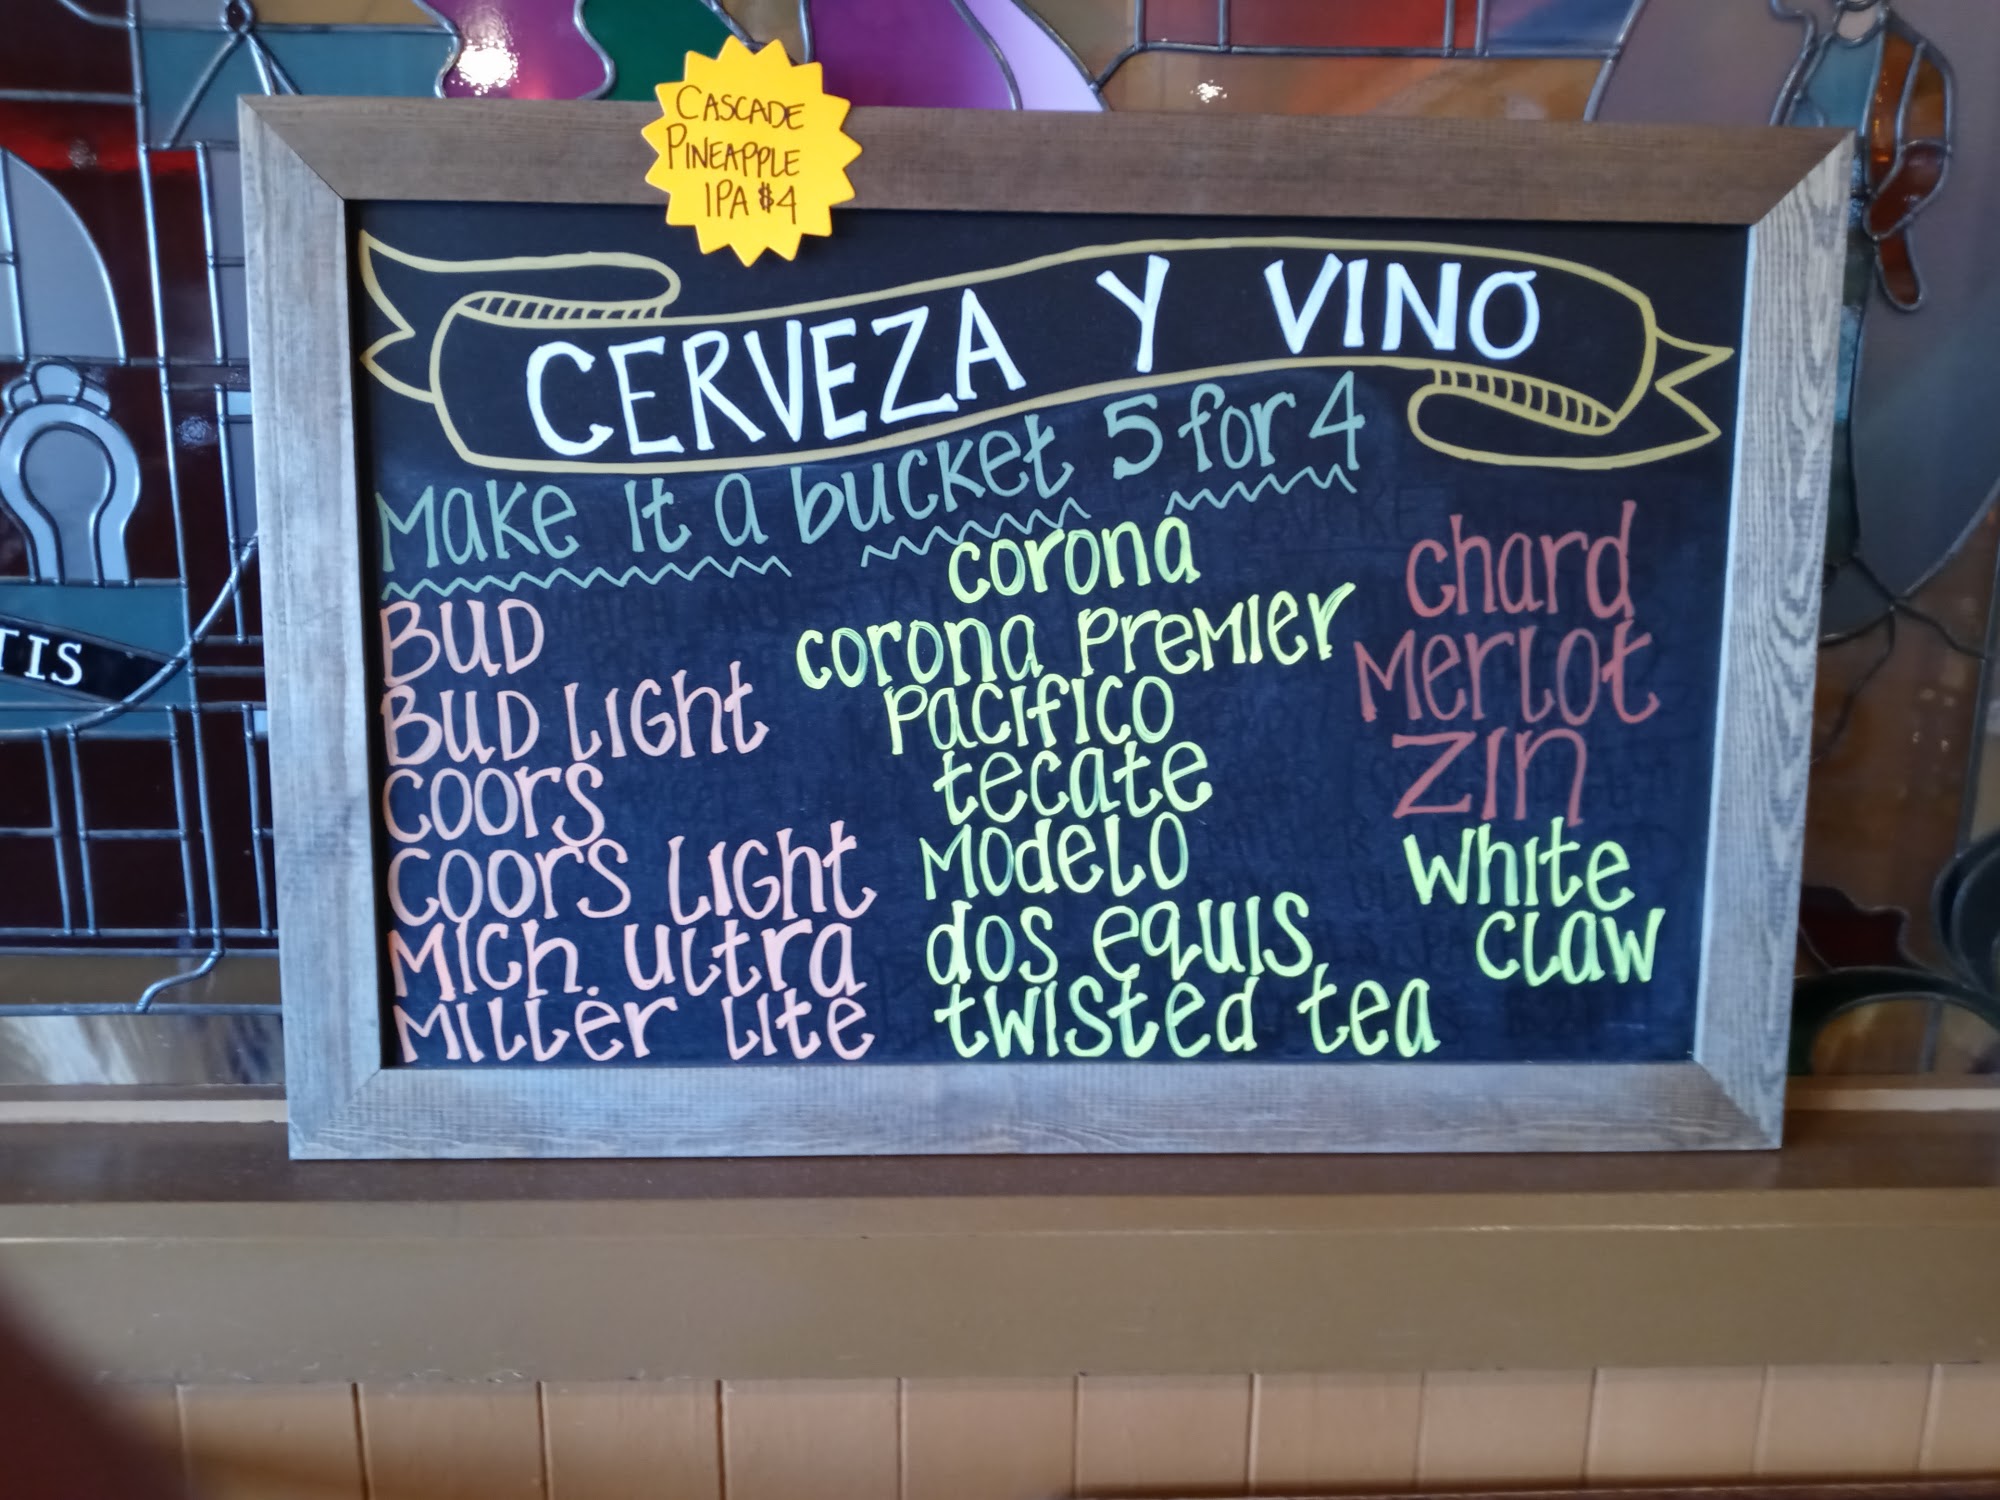 CASCADE
PINEAPPLE
IPA $4
CERVEZA Y VINO
Make It a bucket 5 for 4
BUD
BUD LIGht
COOrS
COOrS LIGht
MICh. ULtra
MILLer LIte
corona
corona PreMIer
PacIfICO
tecate
MOdeLO
dos equIS
twISted tea
chard
MerLot
ZIn
WhIte
CLaw
TIS